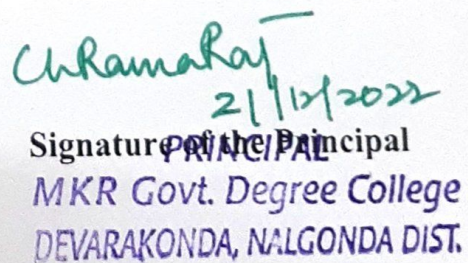 Ch Rama Raj
21/12/2022
Signature of the Principal
PRINCIPAL
MKR Govt. Degree College
DEVARAKONDA, NALGONDA DIST.